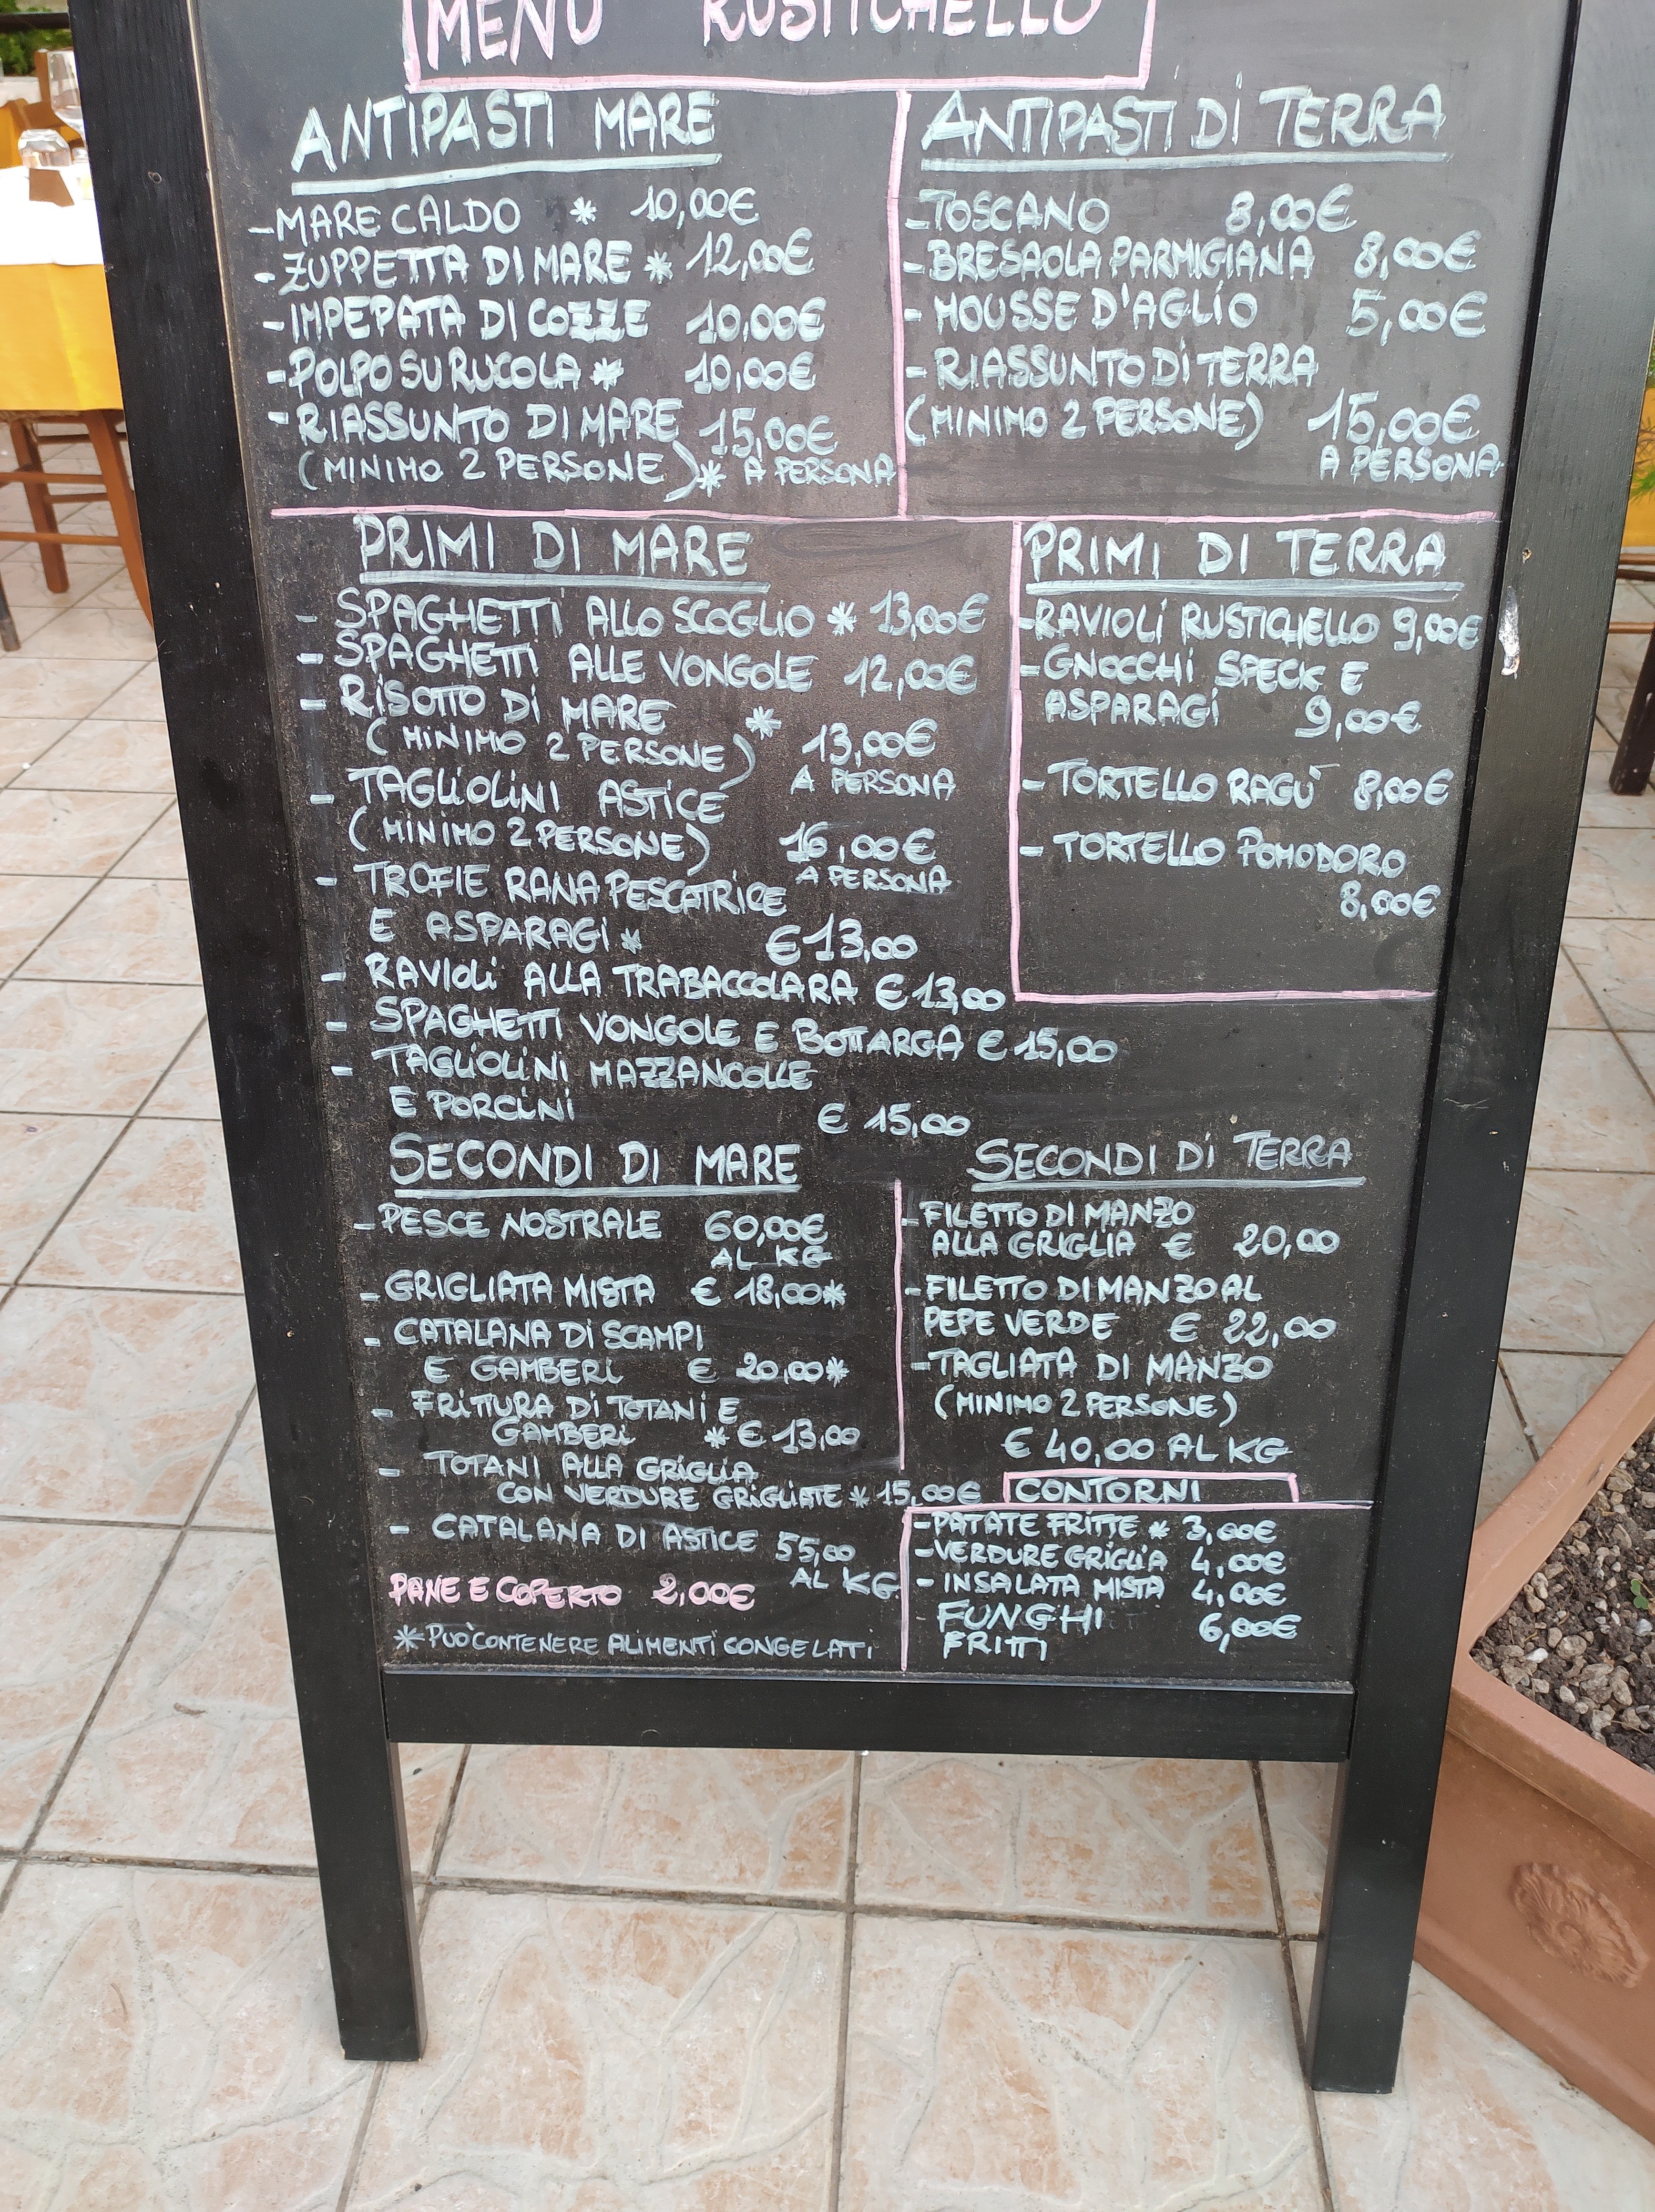 MENÙ RUSTICHELLO
ANTIPASTI MARE
-MARE CALDO * 10,00€
-ZUPPETTA DI MARE * 12,00€
-IMPEPATA DI COZZE 10,00€
-POLPO SU RUCOLA * 10,00€
-RIASSUNTO DI MARE 15,00€
(MINIMO 2 PERSONE)* A PERSONA
ANTIPASTI DI TERRA
-TOSCANO 8,00€
-BRESAOLA PARMIGIANA 8,00€
-MOUSSE D'AGLIO 5,00€
-RIASSUNTO DI TERRA
(MINIMO 2 PERSONE) 15,00€
A PERSONA
PRIMI DI MARE
- SPAGHETTI ALLO SCOGLIO * 13,00€
- SPAGHETTI ALLE VONGOLE 12,00€
- RISOTTO DI MARE *
(MINIMO 2 PERSONE) 13,00€
A PERSONA
- TAGLIOLINI ASTICE
(MINIMO 2 PERSONE) 16,00€
A PERSONA
- TROFIE RANA PESCATRICE
E ASPARAGI * €13,00
- RAVIOLI ALLA TRABACCOLARA €13,00
- SPAGHETTI VONGOLE E BOTTARGA €15,00
- TAGLIOLINI MAZZANCOLLE
E PORCINI € 15,00
PRIMI DI TERRA
-RAVIOLI RUSTICHELLO 9,00€
-GNOCCHI SPECK E
ASPARAGI 9,00€
-TORTELLO RAGÙ 8,00€
- TORTELLO POMODORO
8,00€
SECONDI DI MARE
-PESCE NOSTRALE 60,00€
AL KG
-GRIGLIATA MISTA € 18,00*
- CATALANA DI SCAMPI
E GAMBERI € 20,00*
- FRITTURA DI TOTANI E
GAMBERI * € 13,00
- TOTANI ALLA GRIGLIA
CON VERDURE GRIGLIATE * 15,00€
- CATALANA DI ASTICE 55,00
AL KG
PANE E COPERTO 2,00€
* PUÒ CONTENERE ALIMENTI CONGELATI
SECONDI DI TERRA
-FILETTO DI MANZO
ALLA GRIGLIA € 20,00
-FILETTO DI MANZO AL
PEPE VERDE € 22,00
-TAGLIATA DI MANZO
(MINIMO 2 PERSONE)
€ 40,00 AL KG
CONTORNI
-PATATE FRITTE * 3,00€
-VERDURE GRIGLIA 4,00€
- INSALATA MISTA 4,00€
FUNGHI 6,00€
FRITTI